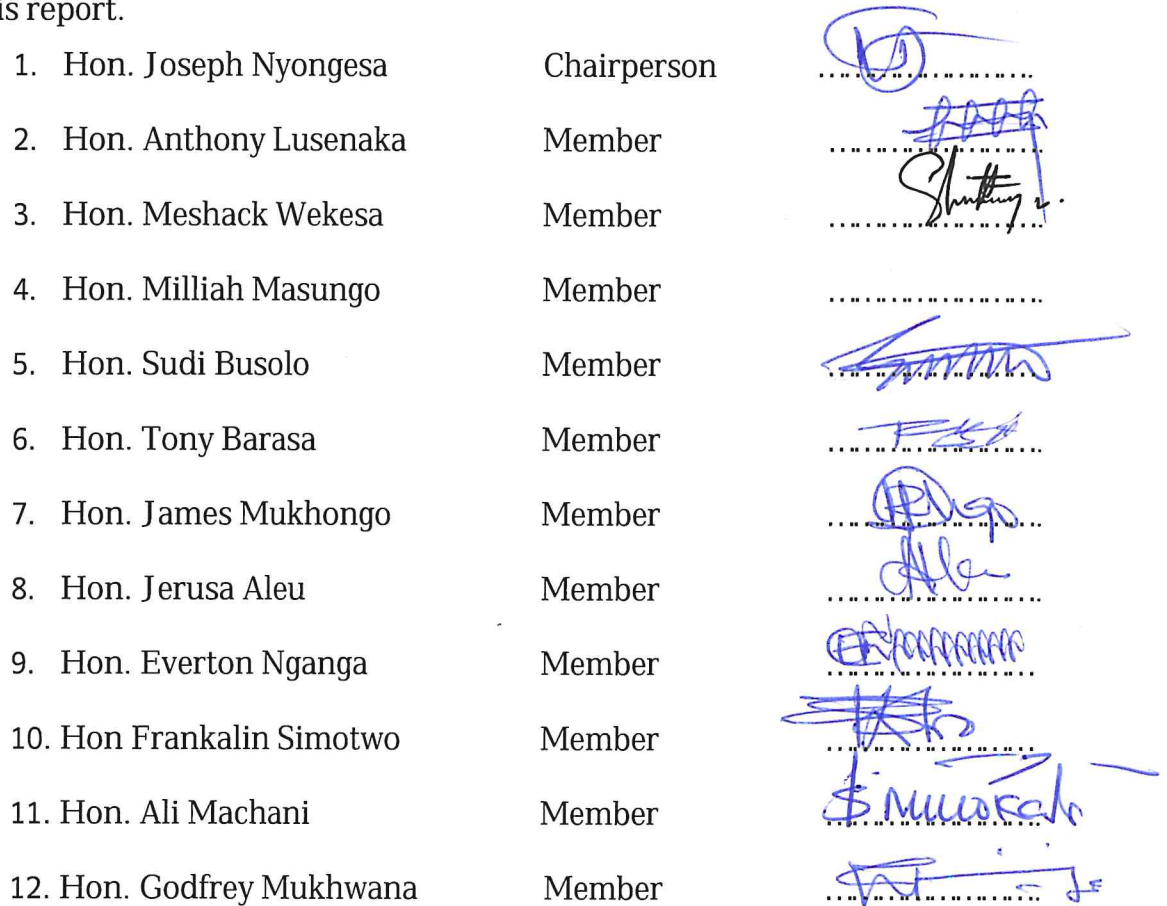 is report.
1. Hon. Joseph Nyongesa Chairperson ........................
2. Hon. Anthony Lusenaka Member ........................
3. Hon. Meshack Wekesa Member ........................
4. Hon. Milliah Masungo Member ........................
5. Hon. Sudi Busolo Member ........................
6. Hon. Tony Barasa Member ........................
7. Hon. James Mukhongo Member ........................
8. Hon. Jerusa Aleu Member ........................
9. Hon. Everton Nganga Member ........................
10. Hon Frankalin Simotwo Member ........................
11. Hon. Ali Machani Member ........................
12. Hon. Godfrey Mukhwana Member ........................